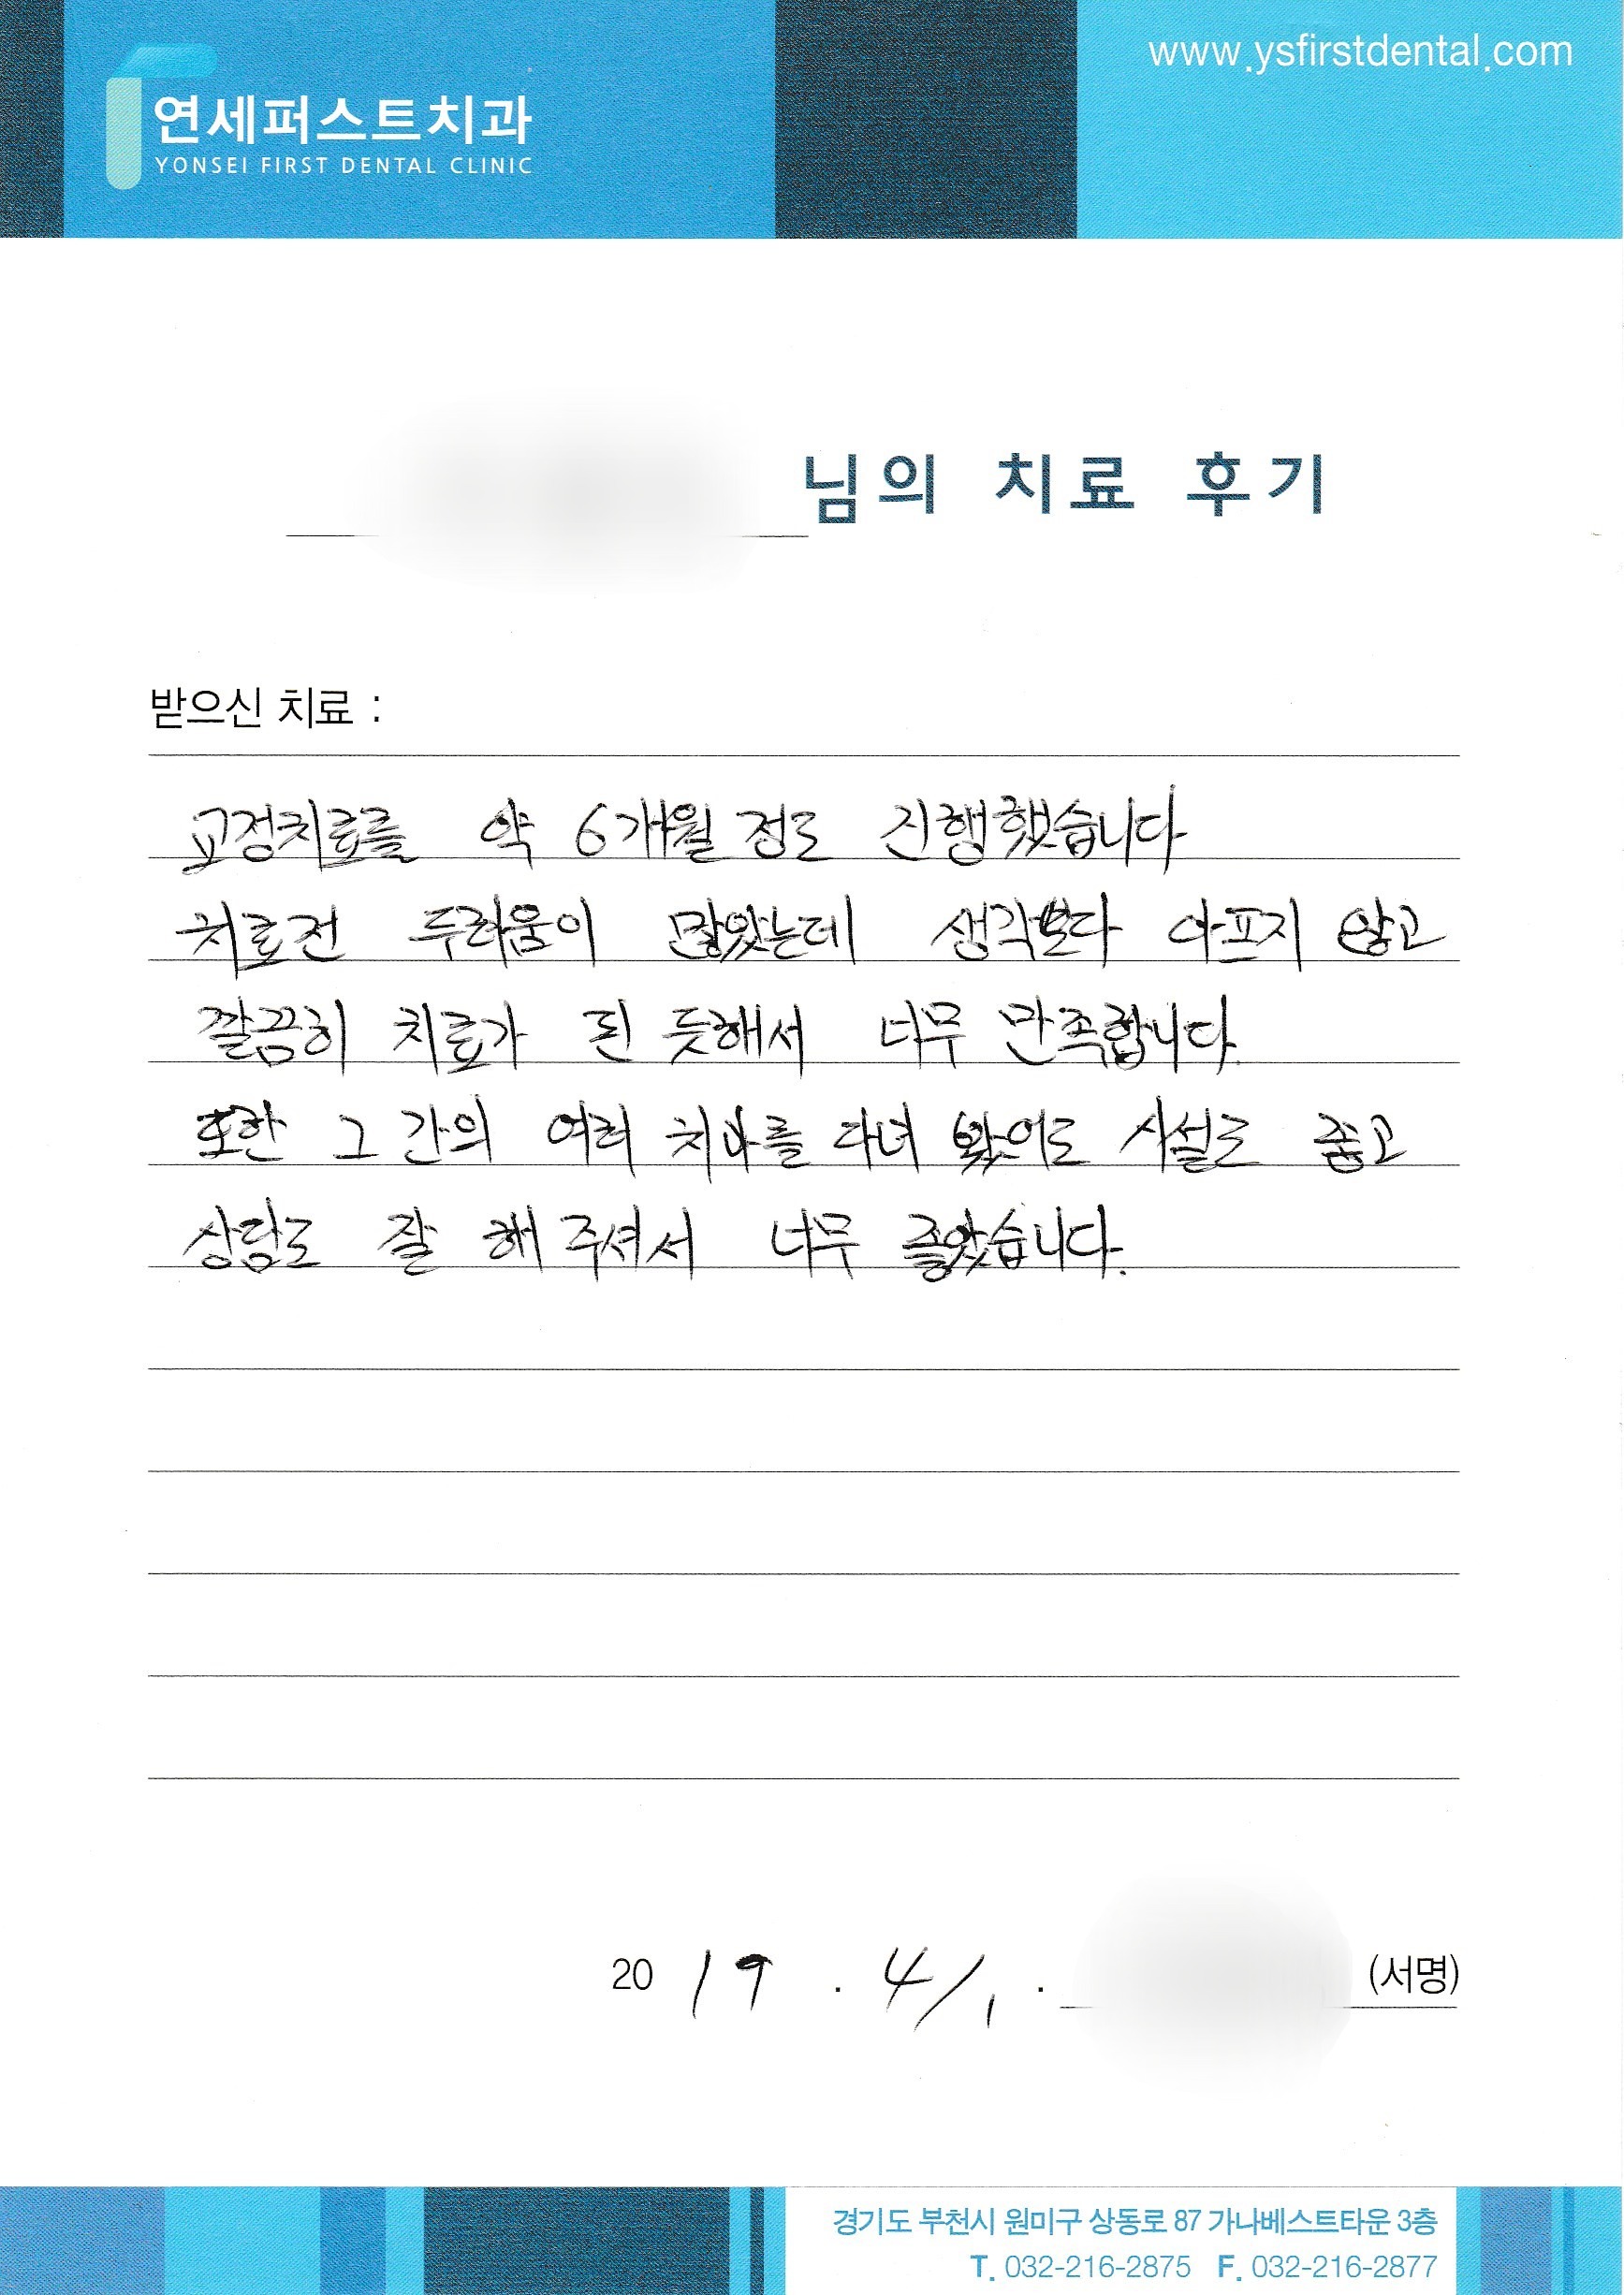 www.ysfirstdental.com
연세퍼스트치과
YONSEI FIRST DENTAL CLINIC
님의 치료 후기
받으신 치료 :
교정치료를 약 6개월 정도 진행했습니다
치료전 두려움이 많았는데 생각보다 아프지 않고
깔끔히 치료가 된 듯해서 너무 만족합니다.
또한 그 간의 여러 치과를 다녀 봤어도 시설도 좋고
상담도 잘 해 주셔서 너무 좋았습니다.
20 19 . 4/1 . (서명)
경기도 부천시 원미구 상동로 87 가나베스트타운 3층
T. 032-216-2875 F. 032-216-2877